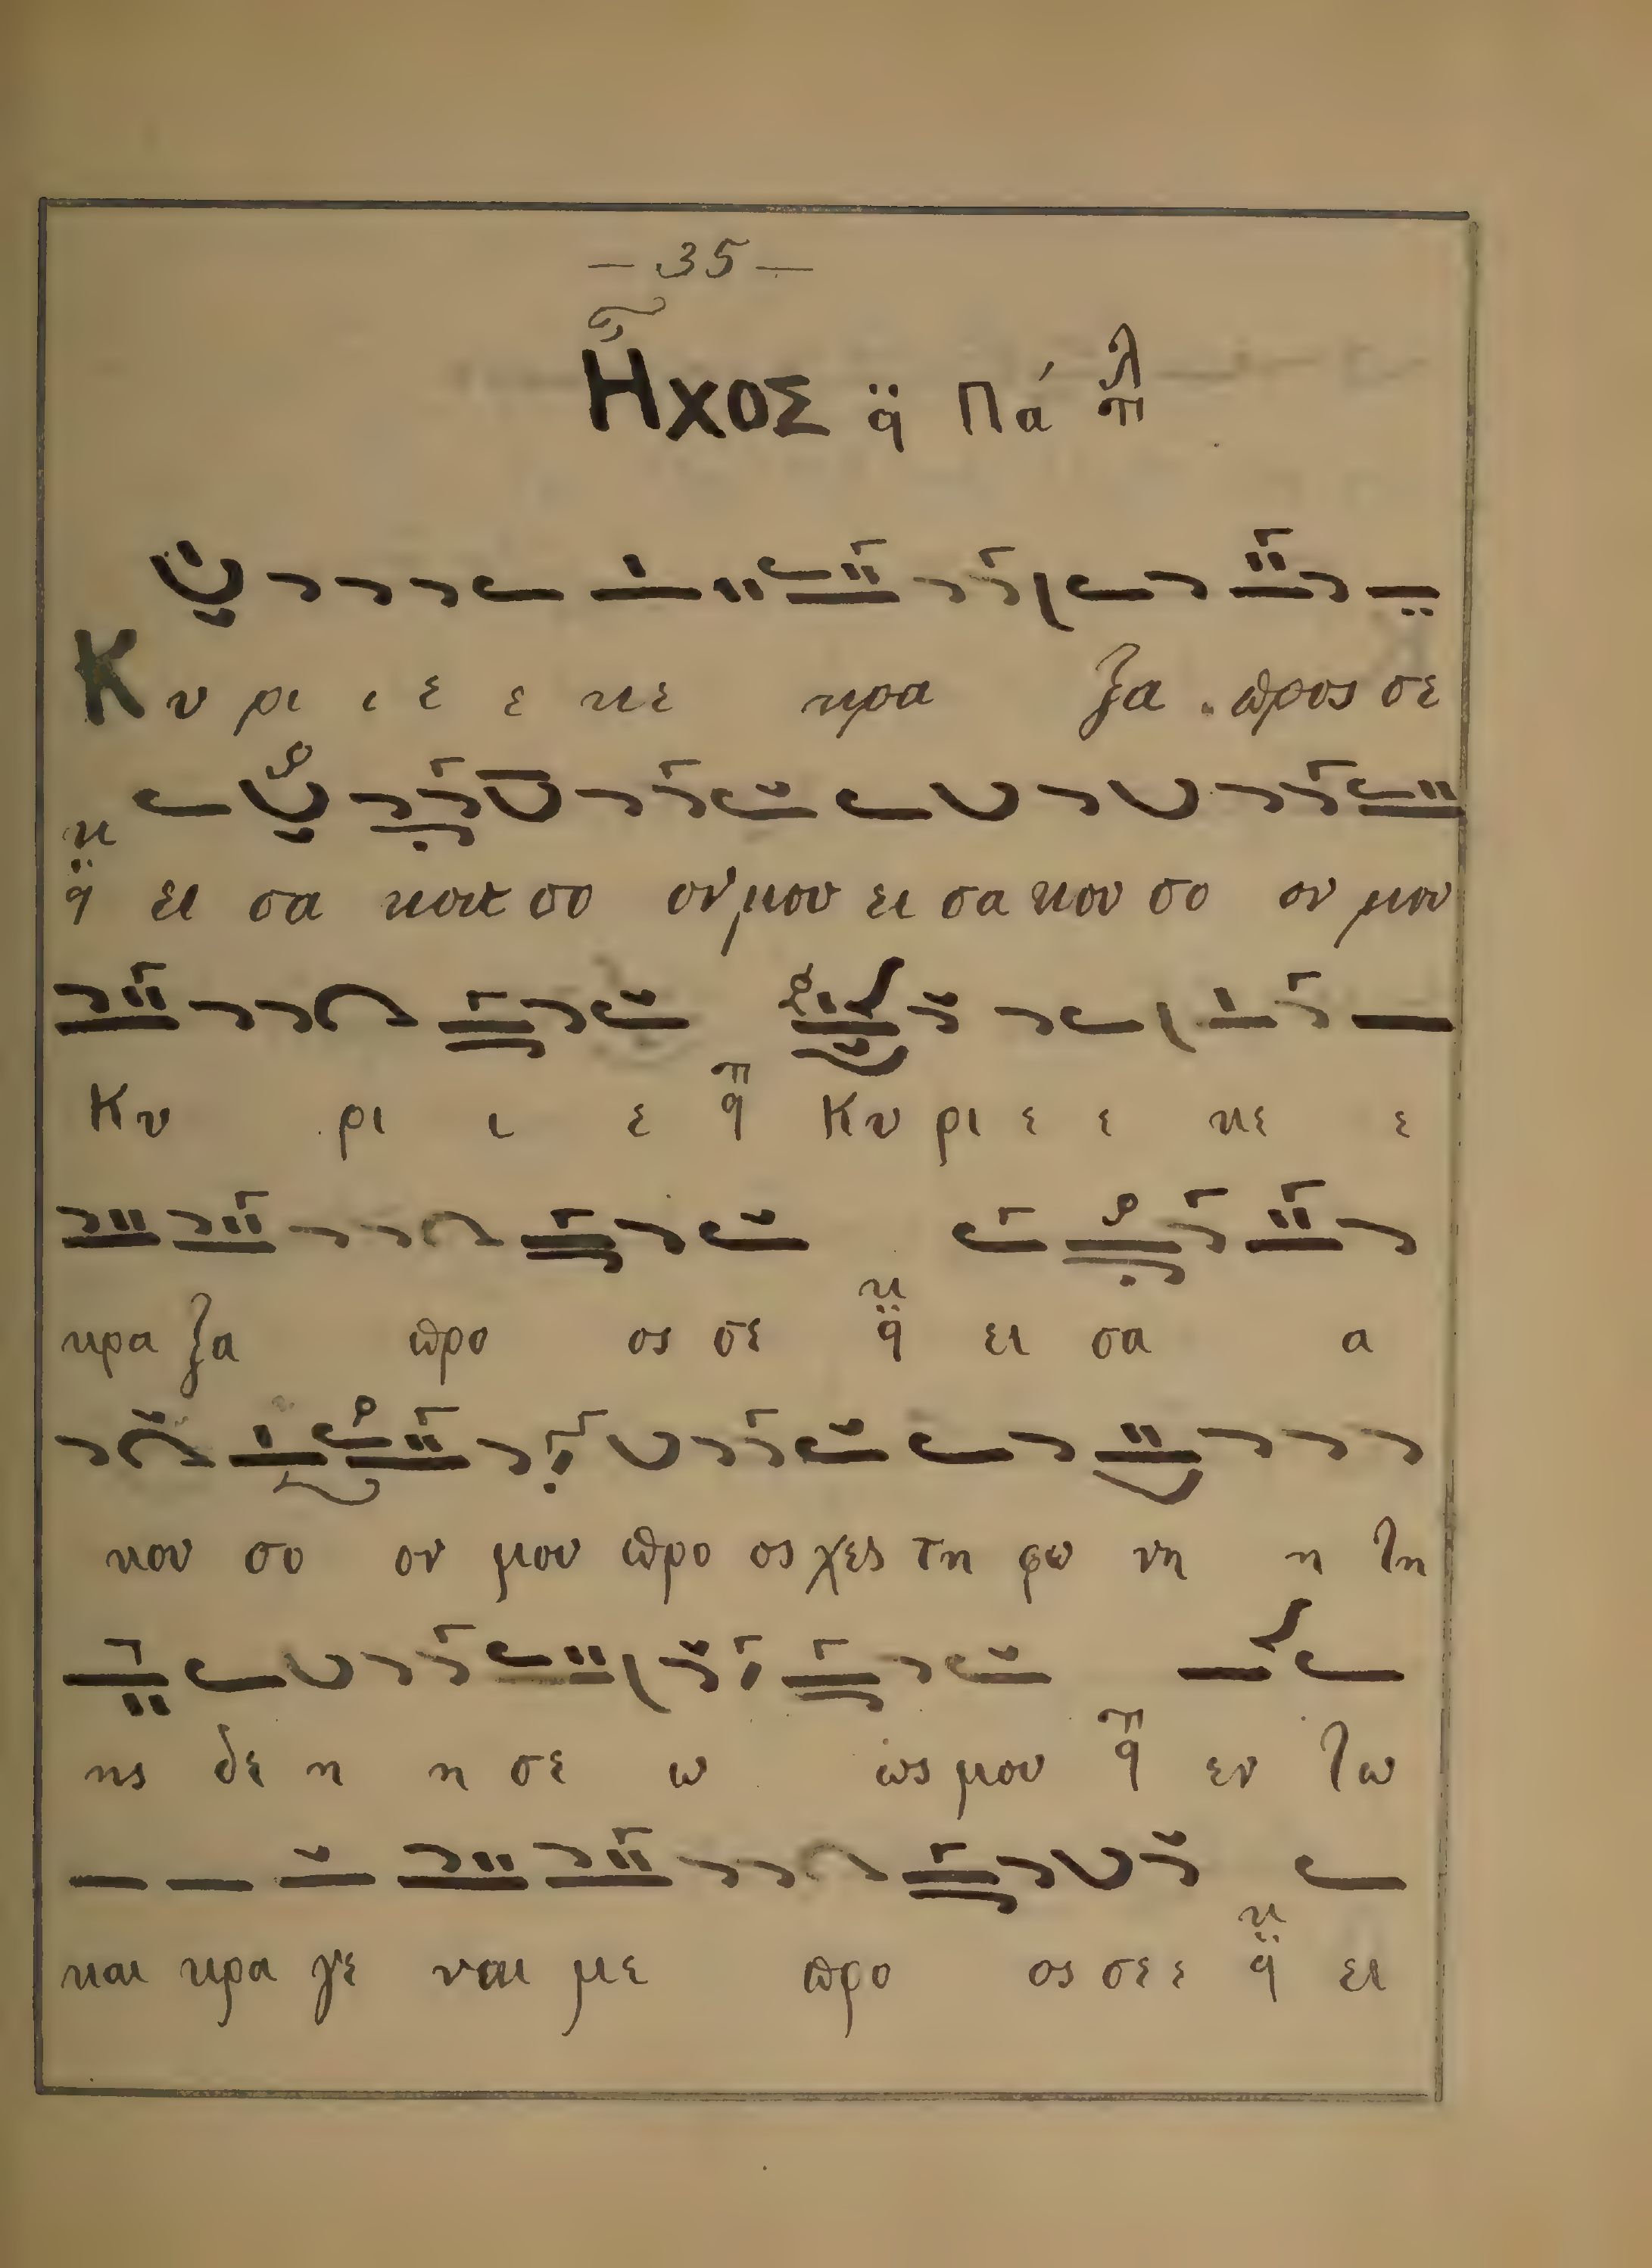 — 35 —
Ἦχος ϥ̈ Πά λ π
Κυ ρι ι ε ε κε κρα ξα προς σε
κ ϥ̈ ει σα κου σο ον μου ει σα κου σο ον μου
Κυ ρι ι ε π ϥ Κυ ρι ε ε κε ε
κρα ξα προ ος σε κ ϥ̈ ει σα α
κου σο ον μου προ ος χες τη φω νη η τη
ης δε η η σε ω ως μου π ϥ εν τω
και κρα γε ναι με προ ος σε ε κ ϥ̈ ει